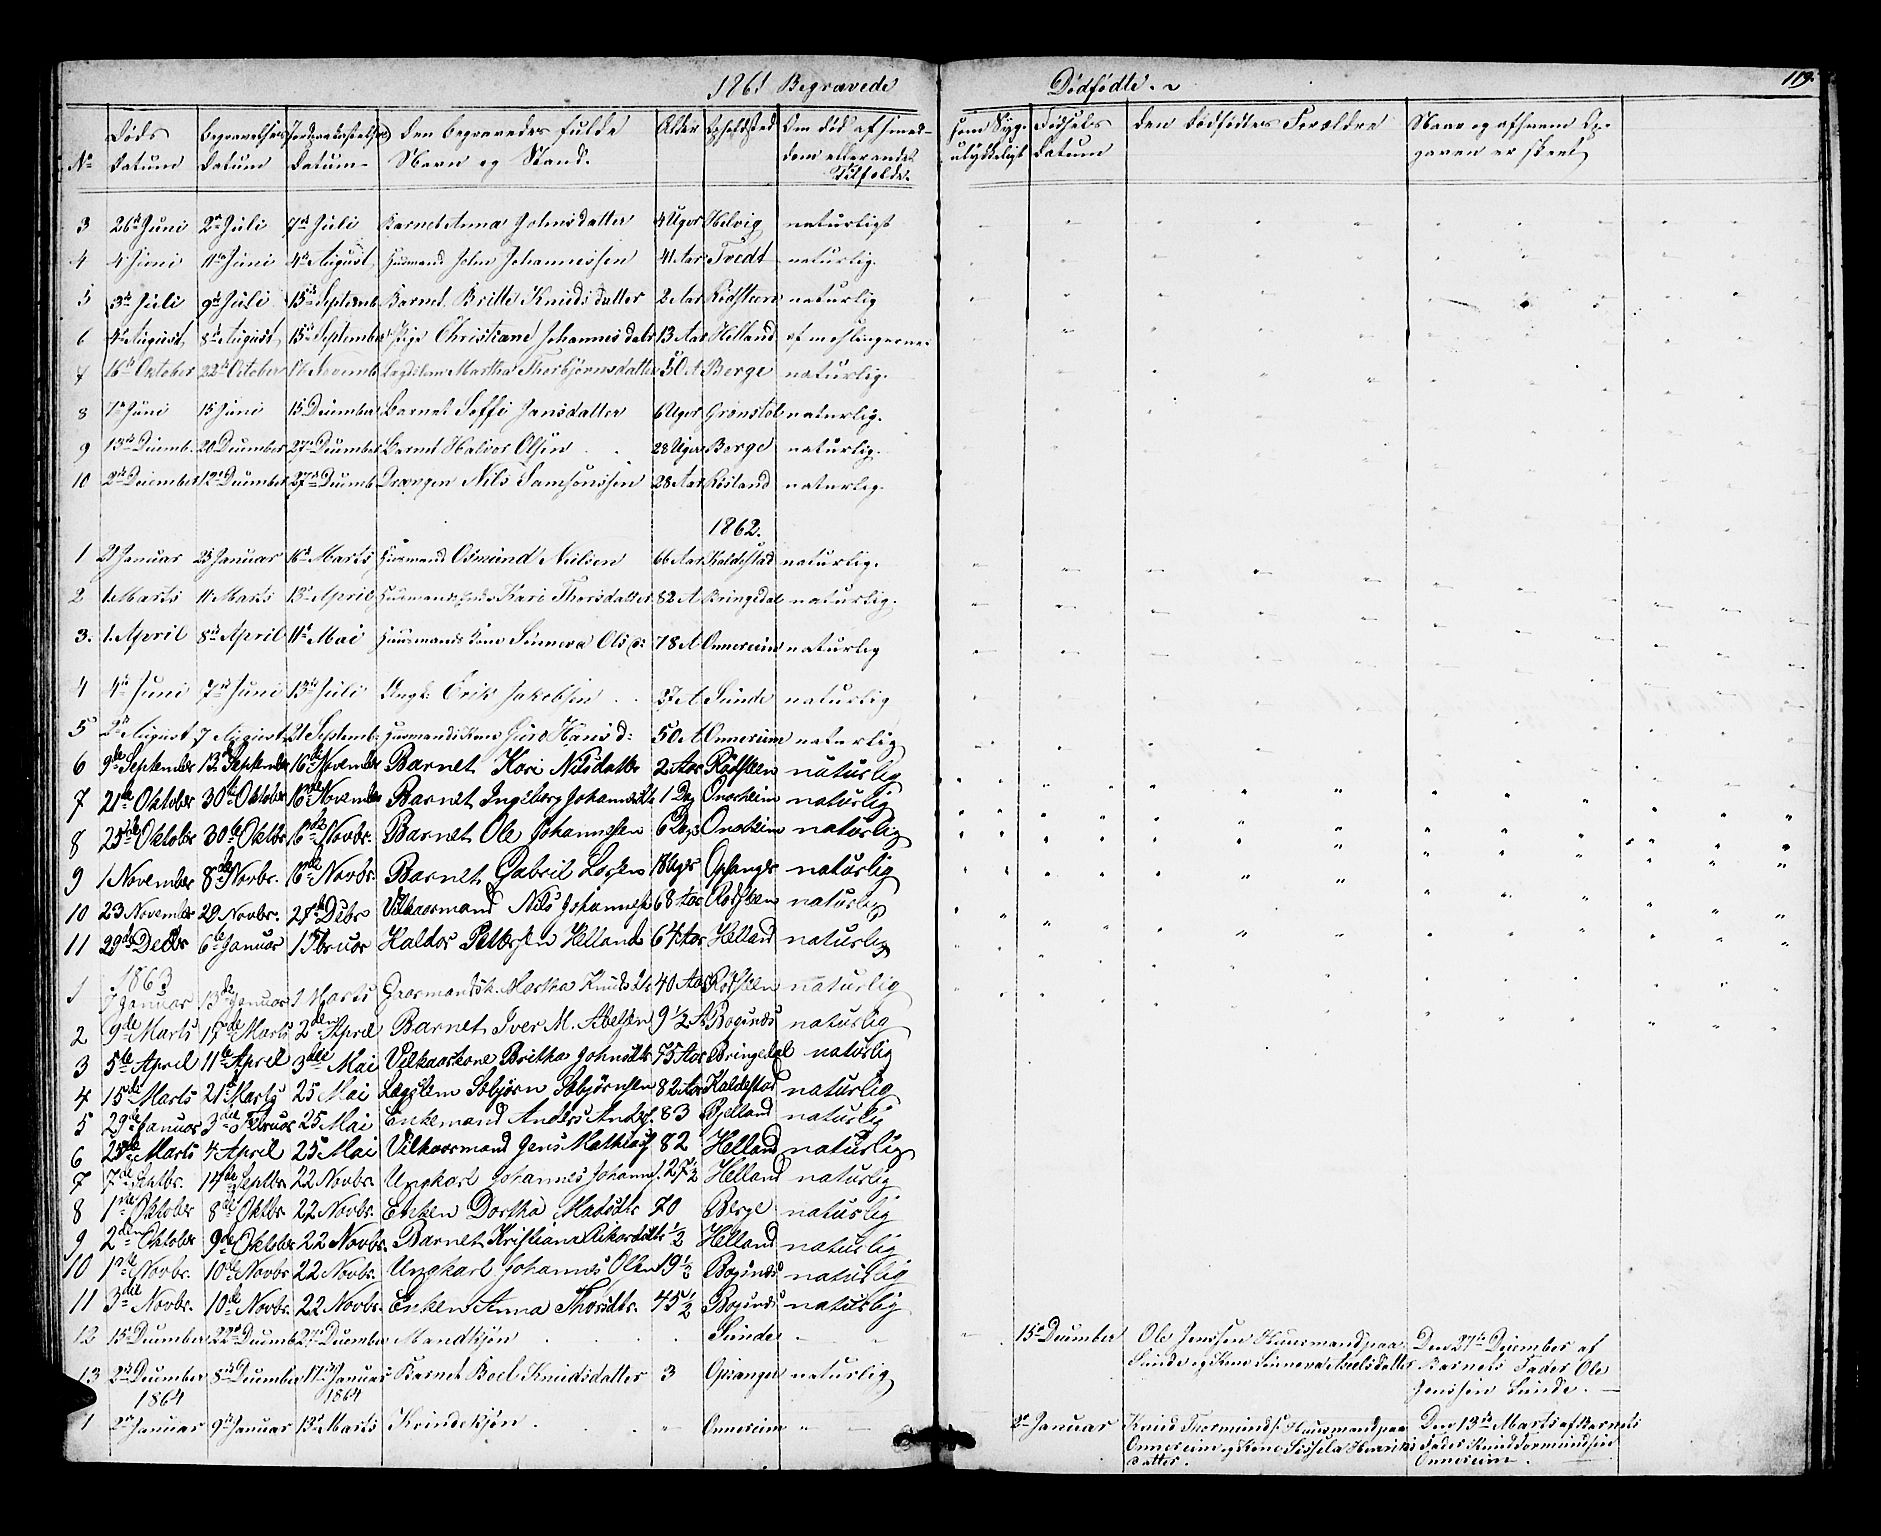 1861 Begravede
Dødfødte.
119.
No Døds Datum Begravelses Datum Jordpaakastelses Datum Den begravedes fulde Navn og Stand. Alder Opholdsted Om død af smedsom eller andet Tilfælde.
som Syg. ulyddeligt Fødsels Datum Den dødfødtes Forældre Naar og af hvem Opgaven er skeet
3 26de Juni 2den Juli 7de Juli Barnet Anna Johnsdatter 4 Uger Helvig naturligt
4 4 Juni 11te Juni 4de August Huusmand John Johannessen 41 Aar Tvedt naturlig.
5 3die Juli 9de Juli 15de Septemb Barnet Britte Knudsdatter 2 Aar Rødsteen naturlig
6 4de August 8de August 15de September Pige Christiane Johannesdatr 13 Aar Helland af meslingerne
7 16de Oktober 22de October 17 Novemb Lægdslem Martha Thorbjørnsdatter 50 A Berge naturlig.
8 7de Juni 15 Juni 15 December Barnet Seffi Jansdatter 6 Uger Grønstøl naturlig.
9 13de Decemb. 20 December 27de December Barnet Halvor Olsen 28 Uger Berge naturlig.
10 2den December 12te December 27de Decemb Drængen Nils Samsonssen 28 Aar Røsland naturlig.
1862.
1 21 Januar 25 Januar 16de Marts Huusmand Osmund Nilsen 66 Aar Kaldestad naturlig.
2 1 Marts 11 Marts 13de April Huusmands Enke Kari Thorsdatter 82 A Bringedal naturlig.
3. 1 April 8de April 11te Mai Huusmands Kone Sinneva Ols d: 78 A Onnereim naturlig
4 4de Juni 7de Juni 13de Juli Ungk: Erik Jakobsen 37 A Sunde naturlig
5 2den August 7 August 21 Septemb. Huusmands Kone Guro Hans d: 50 A Onnereim naturlig
6 9de September 13de September 16de November Barnet Kari Nilsdatter 2 Aar Rødsteen naturlig
7 21de Oktober 30te Oktober 16de November Barnet Ingeborg Johannesdtr 1 Dag Onarheim naturlig
8 25de Oktober 30te Oktbr 16de Novbr. Barnet Ole Johannesen 6 Dage Onarheim naturlig
9 1 November 8de Novbr. 16de Novbr. Barnet Gabriel Larsen 18 Uger Opsanger naturlig
10 23 November 29 Novbr. 28de Debr Vilkaarmand Nils Johannes 68 Aar Rødsteen naturlig
11 29de Decbr 6te Januar 1 Februar Haldor Pettersen Helland 64 Aar Helland naturlig
1863
1 7 Januar 13de Januar 1 Marts Gaarmandsk. Martha Knudsdtr 40 Aar Rødsteen naturlig
2 9de Marts 17de Marts 2den April Barnet Iver M. Abelsen 9 1/2 A Bogsnæs naturlig
3 5te April 11te April 3die Mai Vilkaarkone Britha Johnsdtr 75 Aar Bringedal naturlig
4 15de Marts 21de Marts 25 Mai Lægslem Asbjørn Asbjørnsen 82 Aar Kaldestad naturlig
5 29de Januar 3die Februar 25 Mai Enkemand Anders Anders. 83 Bjelland naturlig
6 28de Marts 4 April 25 Mai Vilkaarmand Jens Mathias. 82 Helland naturlig
7 7de Septbr. 14de Septbr 22 Novbr. Ungkarl Johannes Johann. 27 1/2 Helland naturlig
8 1ste Oktober 8de Oktbr. 22 Novbr. Enken Dortha Madsdtr 70 Berge naturlig
9 2den Oktober 9de Oktober 22 Novbr. Barnet Kristiana Rikardsdtr 1/2 Helland naturlig
10 1ste Novbr. 10de Novbr 22 Novbr. Ungkarl Johannes Olsen 19 1/2 Bogsnæs naturlig
11 3die Novbr. 10de Novbr. 22 Novbr. Enken Anna Thorsdtr. 45 1/2 Bogsnæs naturlig
12 15de December 22de Decemb 27de December Mandkjøn Sunde
15de December Ole Jenssen Huusmand paa Den 27de December af
Sunde og Kone Sinneva Axelsdatter Barnets Fader Ole
Jenssen Sunde.
13 2den December 8de December 17de Januar Barnet Boel Knudsdatter 3 Opsanger naturlig
1864 1864
1 2den Januar 9de Januar 13de Marts Kvindekjøn. Onnereim
2den Januar Knud Tormunds. Huusmand paa Den 13de Marts af Barnets
Onnereim og Kone Sissela Henriks Fader Knud Tormundsen
datter. Onnereim.